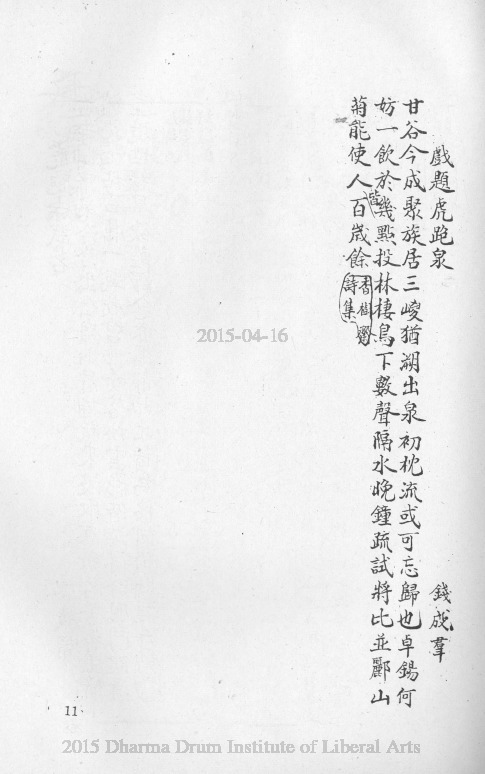 戲題虎跑泉 錢成羣
甘谷今成聚族居三嵕猶溯出泉初枕流或可忘歸也卓錫何
妨一飲於幾點投林棲鳥下數聲隔水晚鐘疏試將比並酈山
皆
菊能使人百歲餘
香樹齋
詩集
2015-04-16
11
2015 Dharma Drum Institute of Liberal Arts